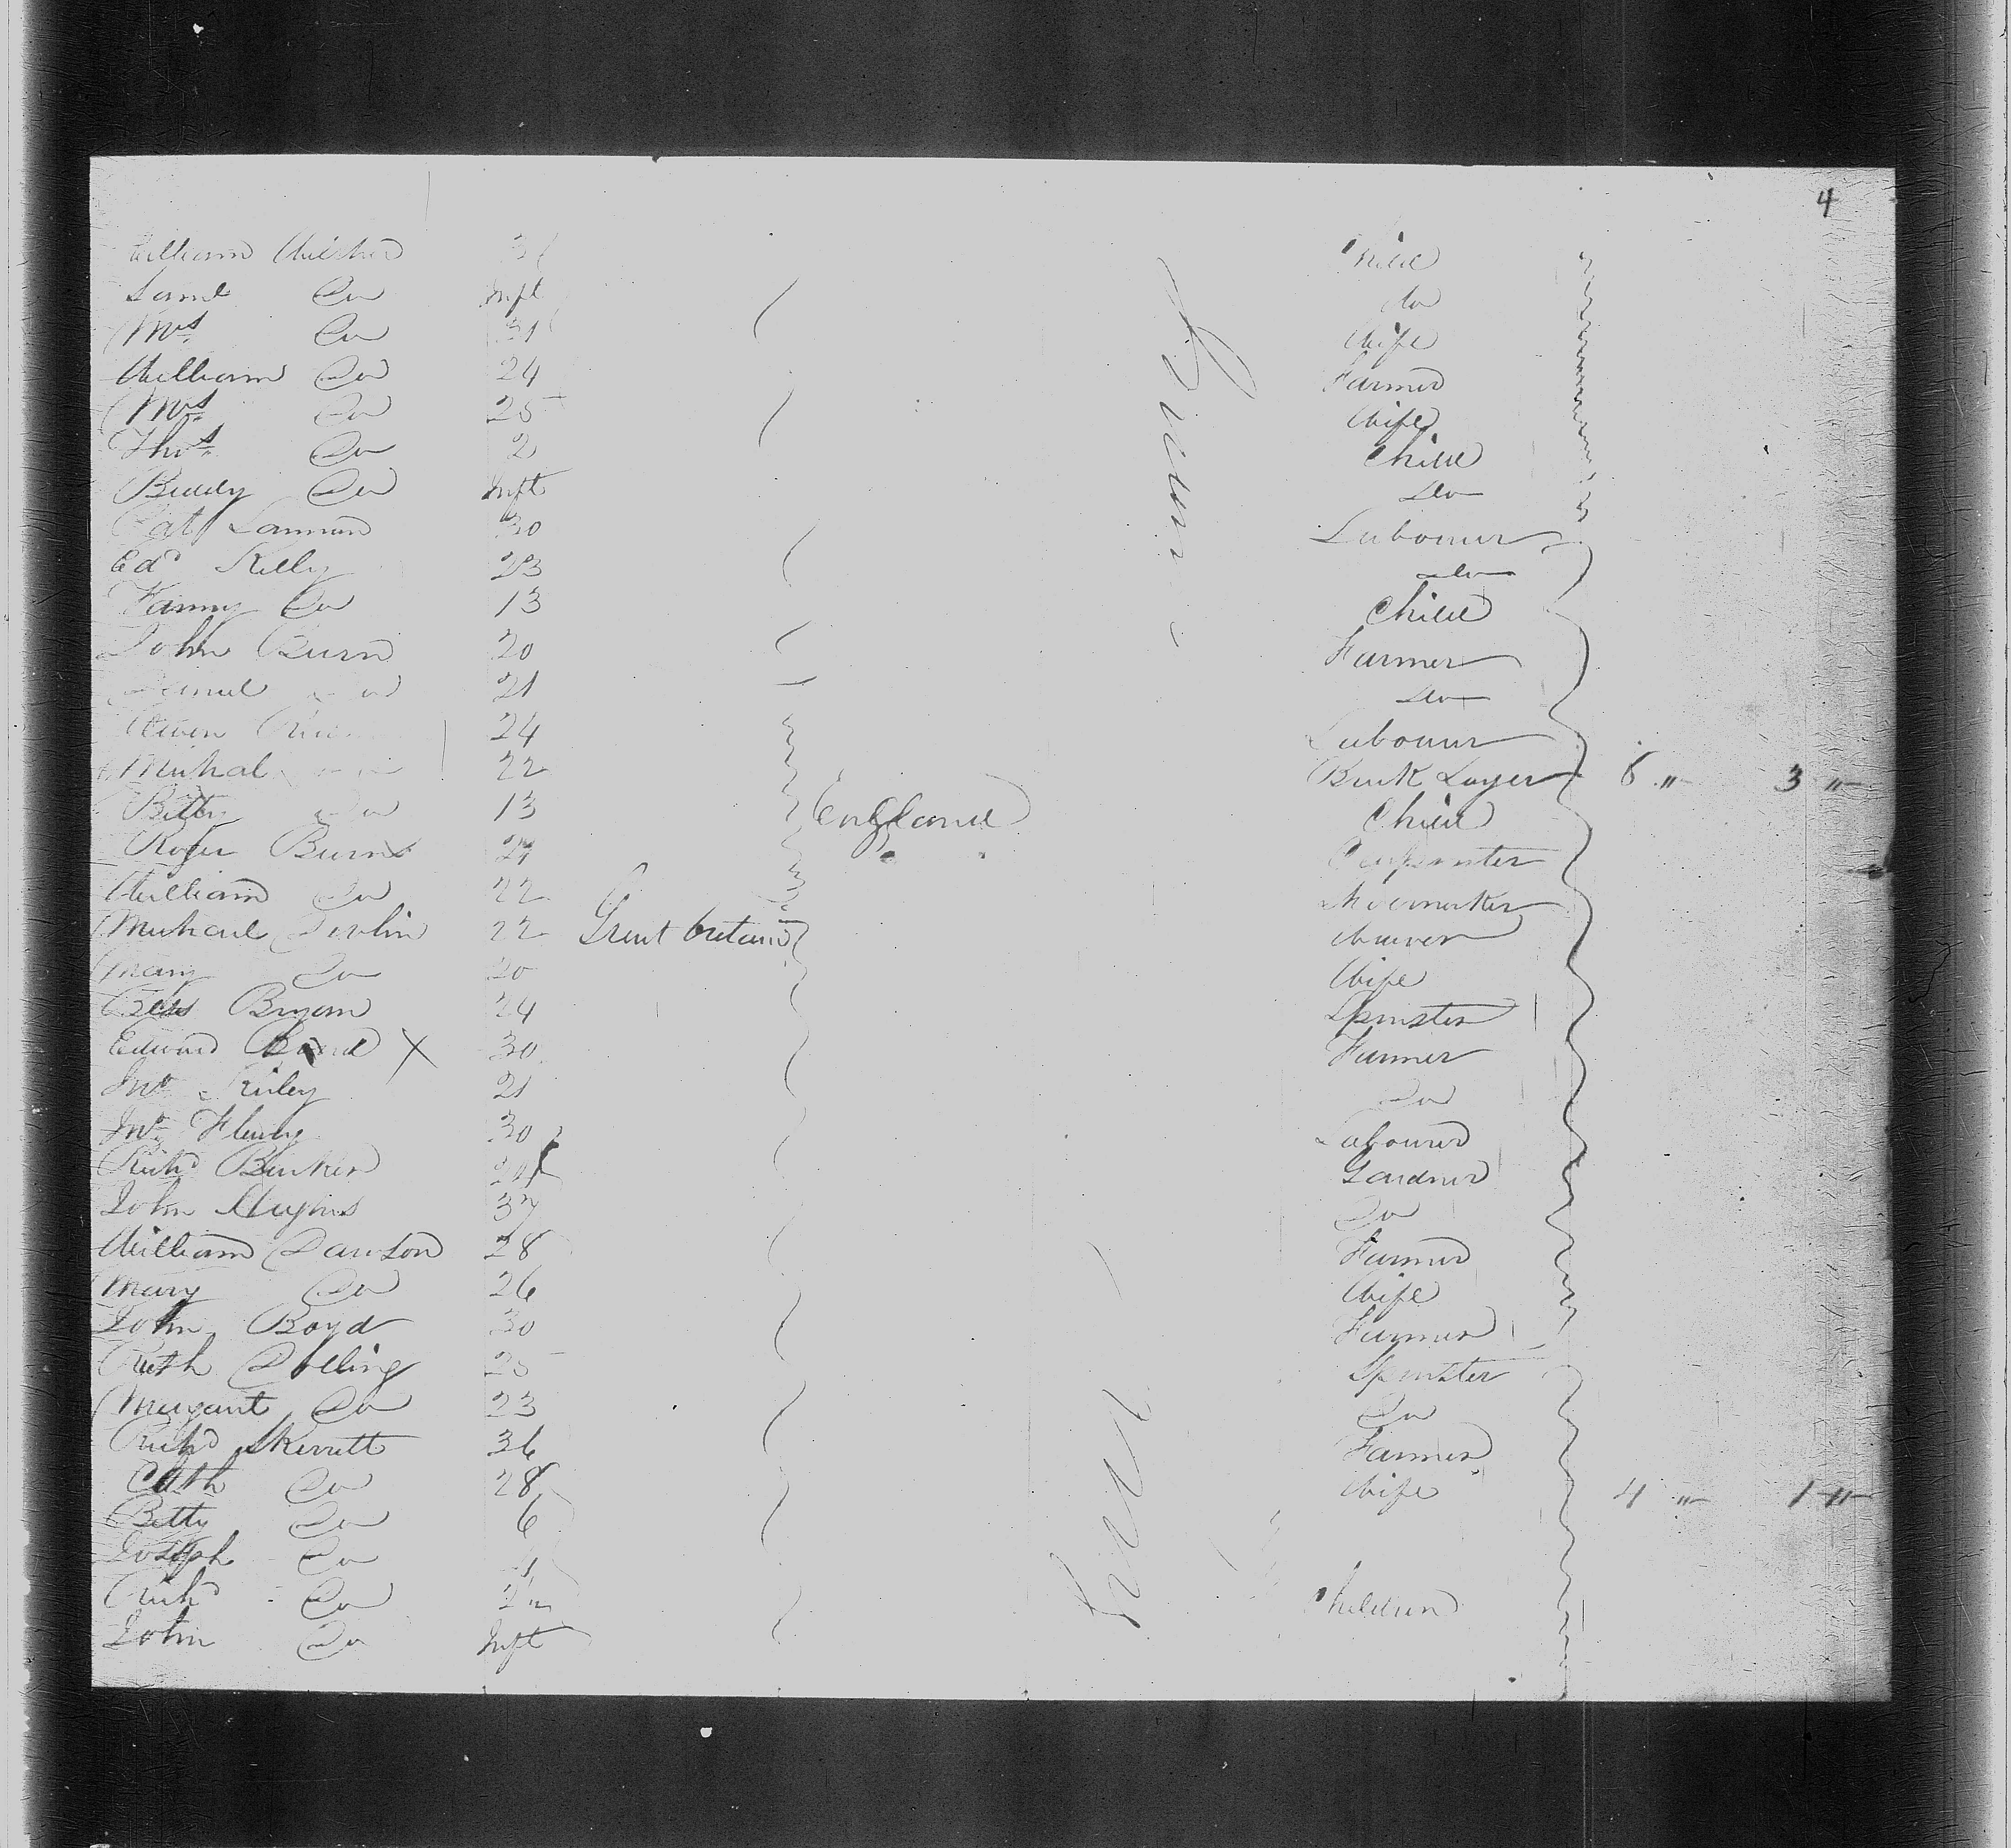 4
William 3 Child
Saml Do Inft do
Mrs Do 31 Wife
William Do 24 Farmer
Mrs Do 25 Wife
Thos Do 2 Child
Biddy Do Inft Do
Pat Lannan 30 Labourer
Edd Kelly 23 do
Fanny Do 13 Child
John Burn 20 Farmer
Daniel Do 21 Do
Owen 24 Labourer
Michal 22 Brick Layer 6 " 3 "
Do 13 England Child
Roger Burns 27 Carpenter
William Do 22 Shoemaker
Michael Devlin 22 Great britain Weaver
Mary Do 20 Wife
Bess Bryan 24 Spinster
Edward X 30 Farmer
Jno Riley 21 Do
Jno 30 Labourer
Richd Barker Gardner
John Hughes 37 Do
William Dawson 28 Farmer
Mary Do 26 Wife
John Boyd 30 Farmer
Ruth Dolling 25 Spinster
Margaret Do 23 Do
Richd Skerrett 36 Farmer
Cath Do 28 Wife 4 " 1 "
Betty Do 6
Joseph Do 4
Richd Do 2 Children
John Do Inft